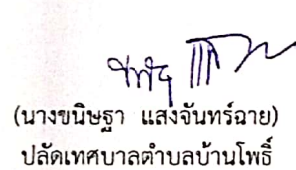 (นางขนิษฐา แสงจันทร์ฉาย)
ปลัดเทศบาลตำบลบ้านโพธิ์